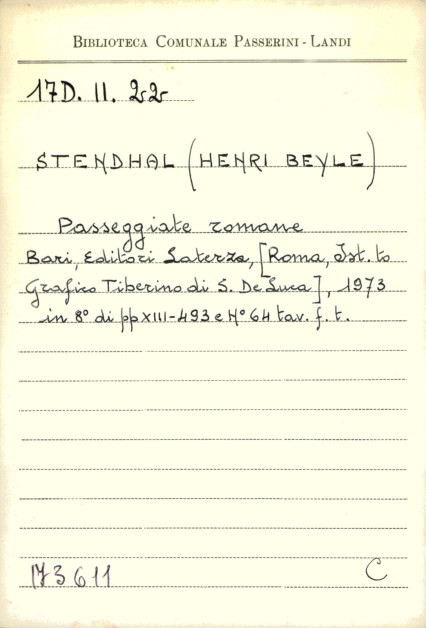 BIBLIOTECA COMUNALE PASSERINI - LANDI
17D. II. 22
STENDHAL (HENRI BEYLE)
Passeggiate romane
Bari, Editori Laterza, [Roma, Ist. to
Grafico Tiberino di S. De Luca], 1973
in 8° di pp XIII-493 e N° 64 tav. f. t.
173611
C